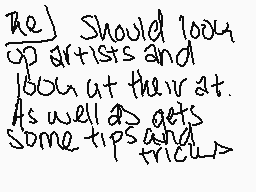 Re] Should look
up artists and
look at their at.
As well as gets
some tips and
tricks